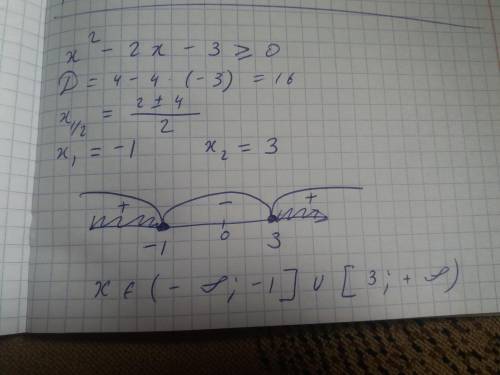 x² - 2x - 3 ⩾ 0
D = 4 - 4 · (-3) = 16
x₁/₂ = (2 ± 4)/2
x₁ = -1 x₂ = 3
+ - +
-1 0 3
x ∈ (-∞; -1] ∪ [3; +∞)